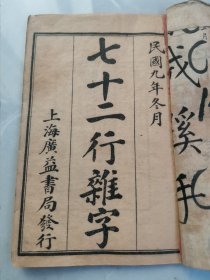 民國九年冬月
七十二行雜字
上海廣益書局發行